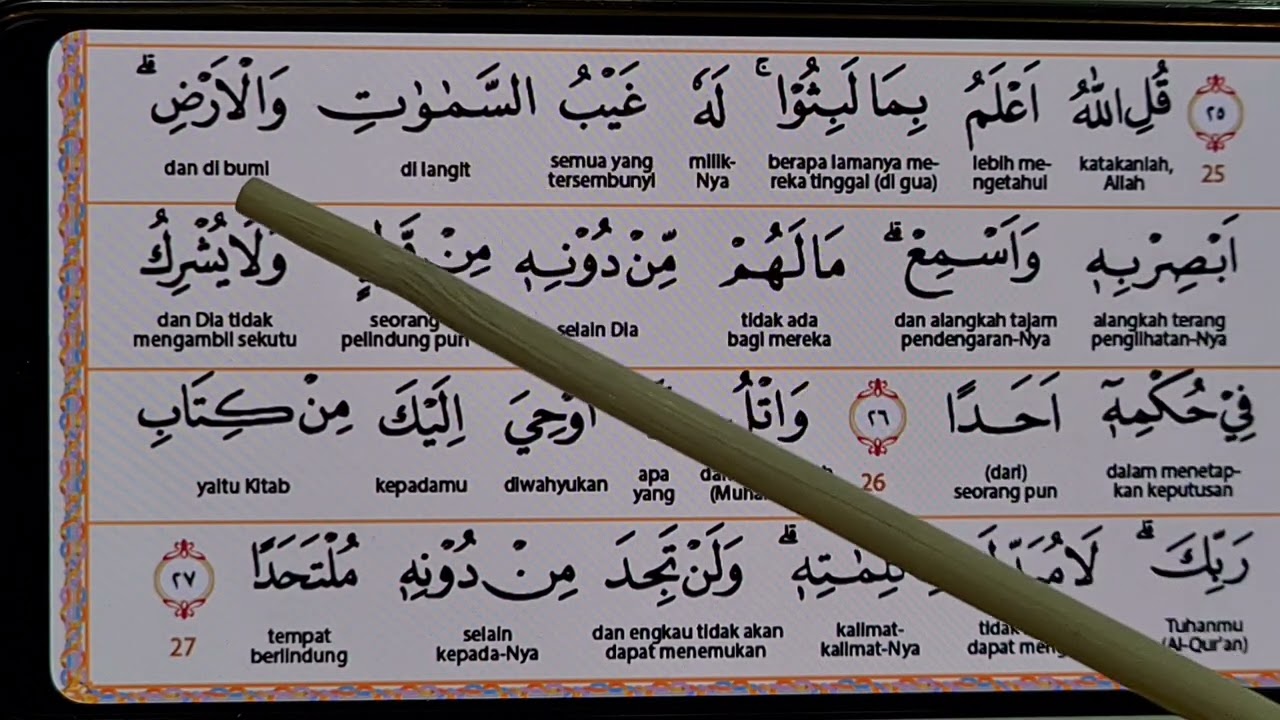 ٢٥ قُلِ اللّٰهُ اَعْلَمُ بِمَا لَبِثُوْا ۚ لَهٗ غَيْبُ السَّمٰوٰتِ وَالْاَرْضِۗ
25 katakanlah, Allah lebih me-ngetahui berapa lamanya me-reka tinggal (di gua) milik-Nya semua yang tersembunyi di langit dan di bumi
اَبْصِرْ بِهٖ وَاَسْمِعْۗ مَا لَهُمْ مِّنْ دُوْنِهٖ مِنْ وَلَا يُشْرِكُ
alangkah terang penglihatan-Nya dan alangkah tajam pendengaran-Nya tidak ada bagi mereka selain Dia seorang pelindung pun dan Dia tidak mengambil sekutu
فِيْ حُكْمِهٖٓ اَحَدًا ٢٦ وَاتْلُ اُوْحِيَ اِلَيْكَ مِنْ كِتَابِ
dalam menetap-kan keputusan (dari) seorang pun 26 apa yang diwahyukan kepadamu yaitu Kitab
رَبِّكَۗ لَا لِكَلِمٰتِهٖۗ وَلَنْ تَجِدَ مِنْ دُوْنِهٖ مُلْتَحَدًا ٢٧
Tuhanmu (Al-Qur'an) dapat kalimat-kalimat-Nya dan engkau tidak akan dapat menemukan selain kepada-Nya tempat berlindung 27